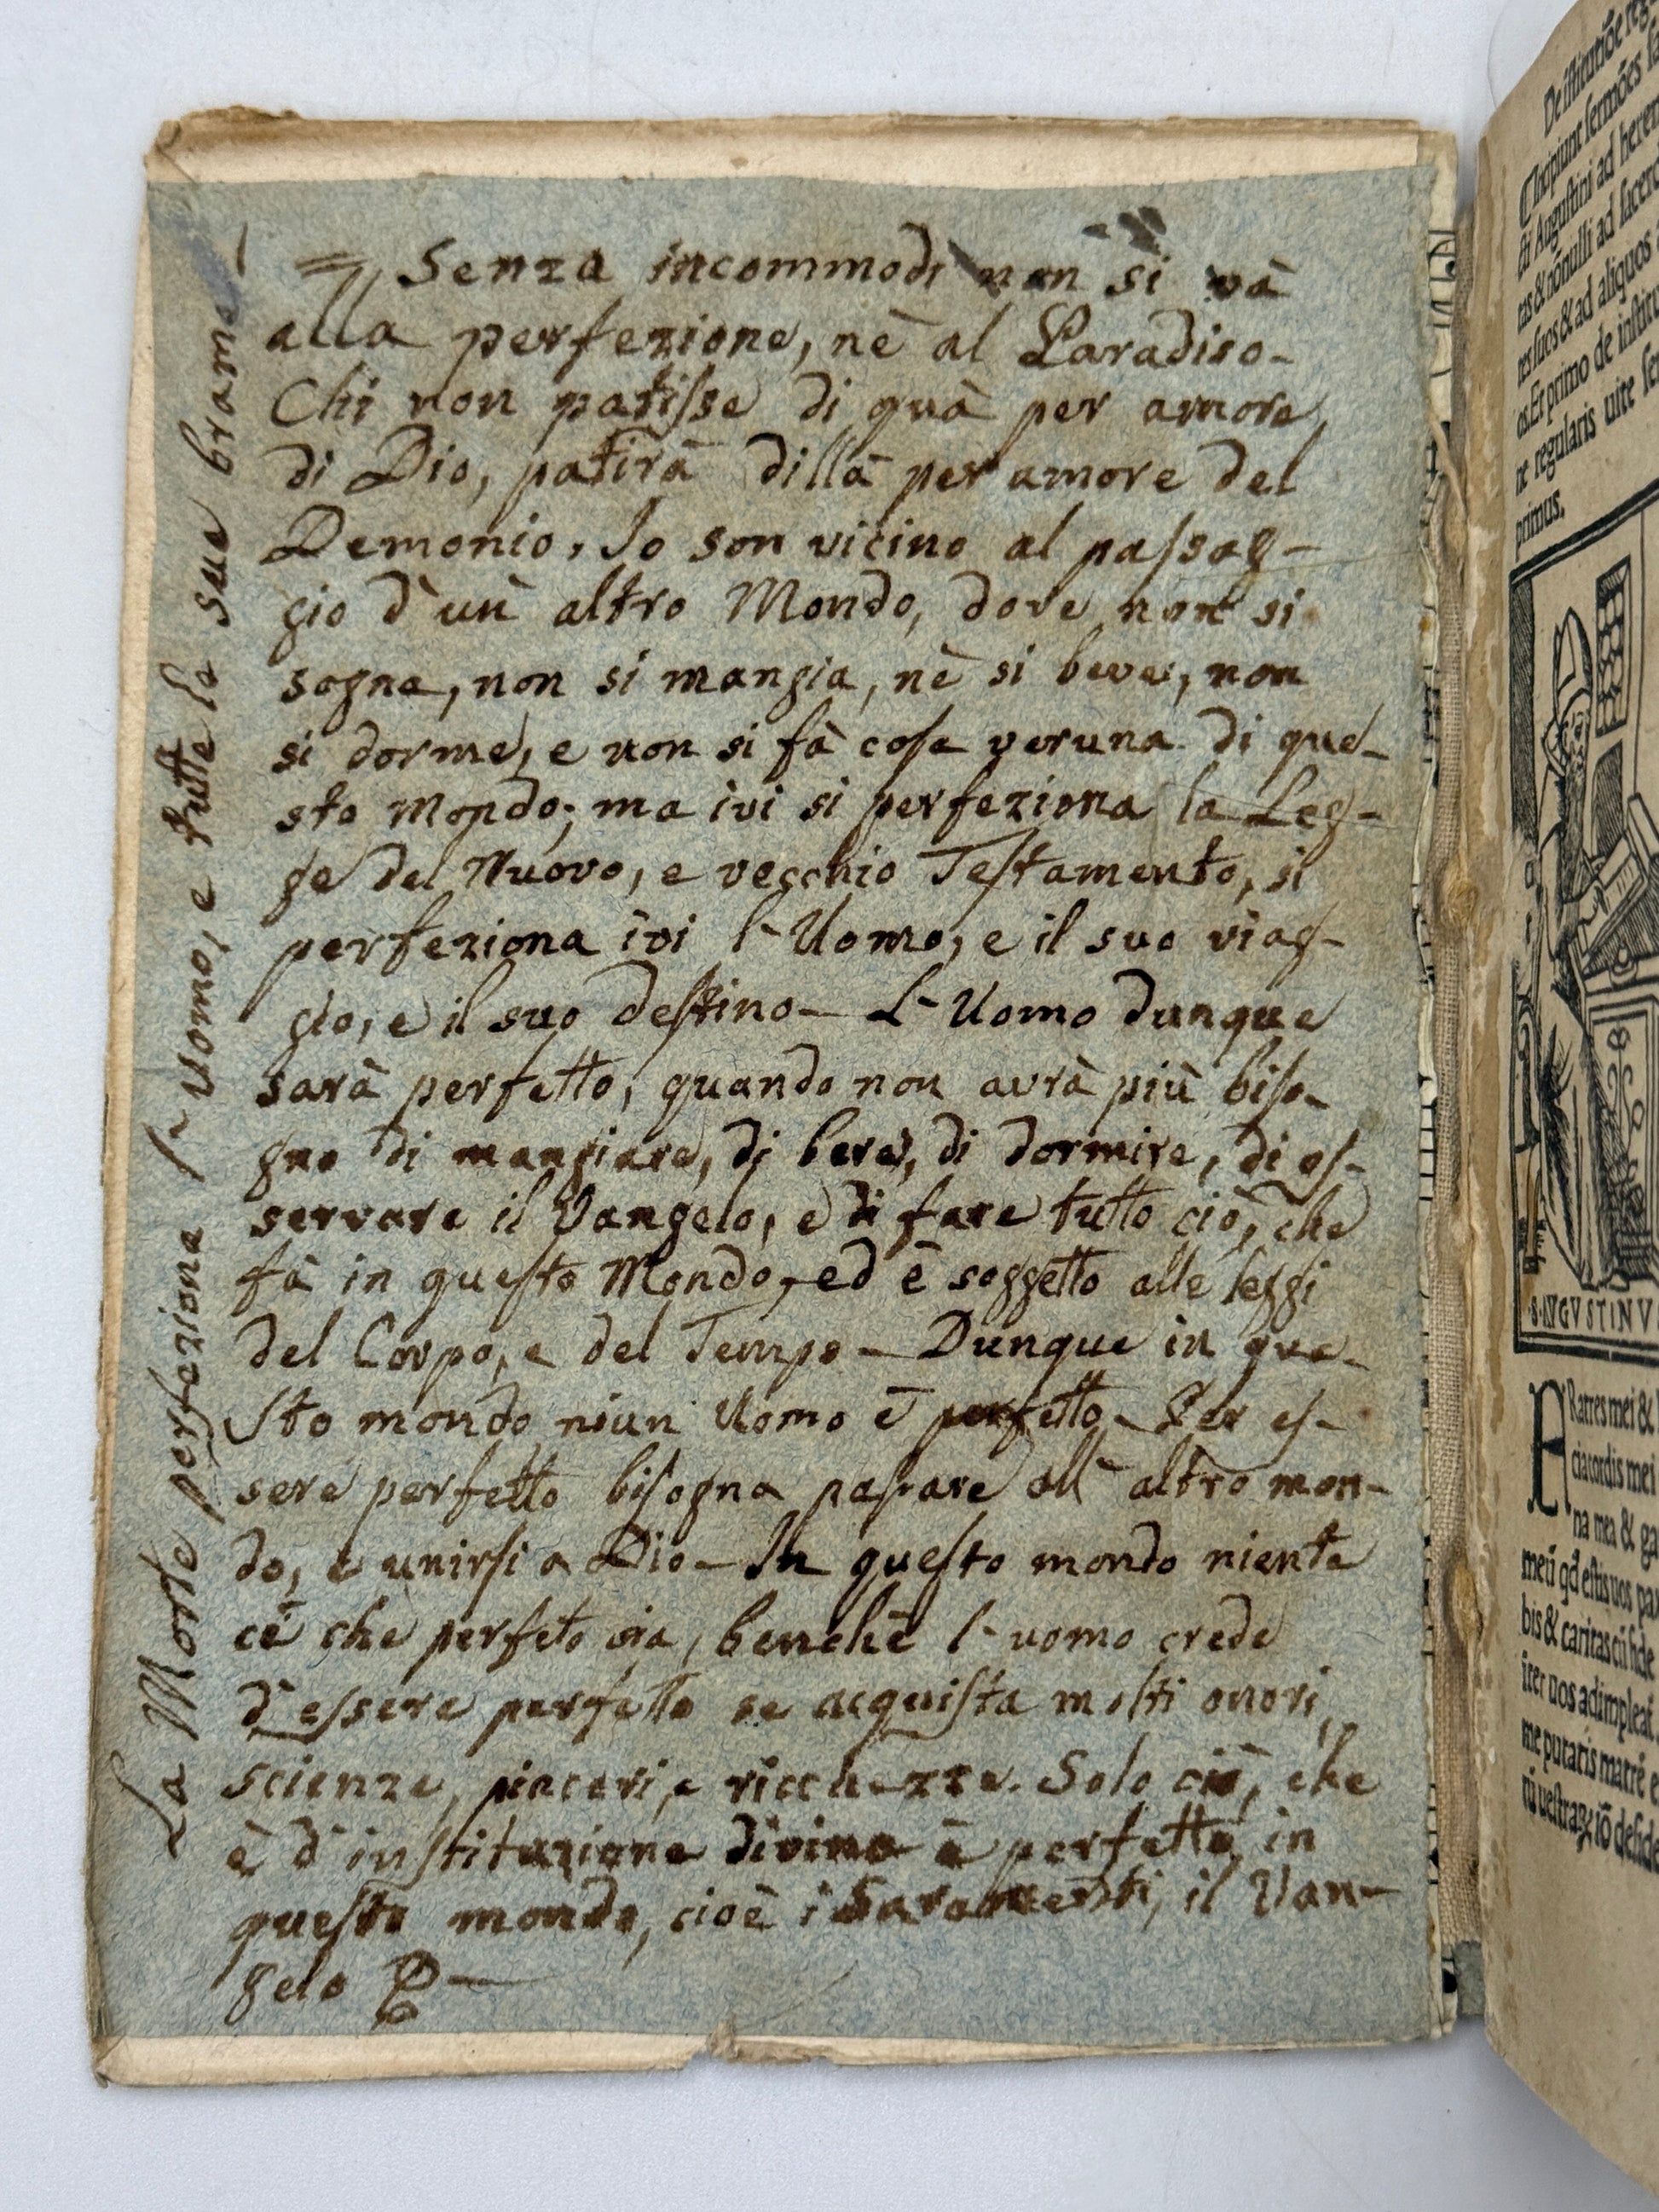 = Senza incommodi non si và
alla perfezione, nè al Paradiso-
Chi non patisse di quà per amore
di Dio, patirà dillà per amore del
Demonio, Io son vicino al passag-
gio d'un altro Mondo, dove non si
sogna, non si mangia, nè si beve, non
si dorme, e non si fà cosa veruna di que-
sto Mondo; ma ivi si perfeziona la Leg-
ge del Nuovo, e vecchio Testamento, si
perfeziona ivi l'Uomo, e il suo viag-
gio, e il suo destino- L'Uomo dunque
sarà perfetto, quando non avrà più biso-
gno di mangiare, di bere, di dormire, di os-
servare il Vangelo, e di fare tutto ciò, che
fà in questo Mondo, ed è soggetto alle leggi
del Corpo, e del Tempo- Dunque in que-
sto mondo niun Uomo è perfetto- Per es-
sere perfetto bisogna passare all'altro mon-
do, e unirsi a Dio- In questo mondo niente
cè che perfeto sia, benchè l'uomo crede
d'essere perfetto se acquista molti onori,
scienze, piaceri, e ricchezze. Solo ciò, che
è d'instituzione divina è perfetto in
questo mondo, cioè i Saramenti, il Van-
gelo
La Morte perfeziona l'uomo, e tutte le sue brame-
De istitutiõe
Incipiunt sermões
cti Augustini ad
tas & nõnulli ad
tes suos & ad aliquos
os. Et primo de
ne regularis uite
primus.
S. AUGVSTINVS
FRatres mei &
cia cordis mei
na mea &
meũ qd estis uos
bis & caritas cũ fide
iter uos adimpleat.
me putatis matrẽ